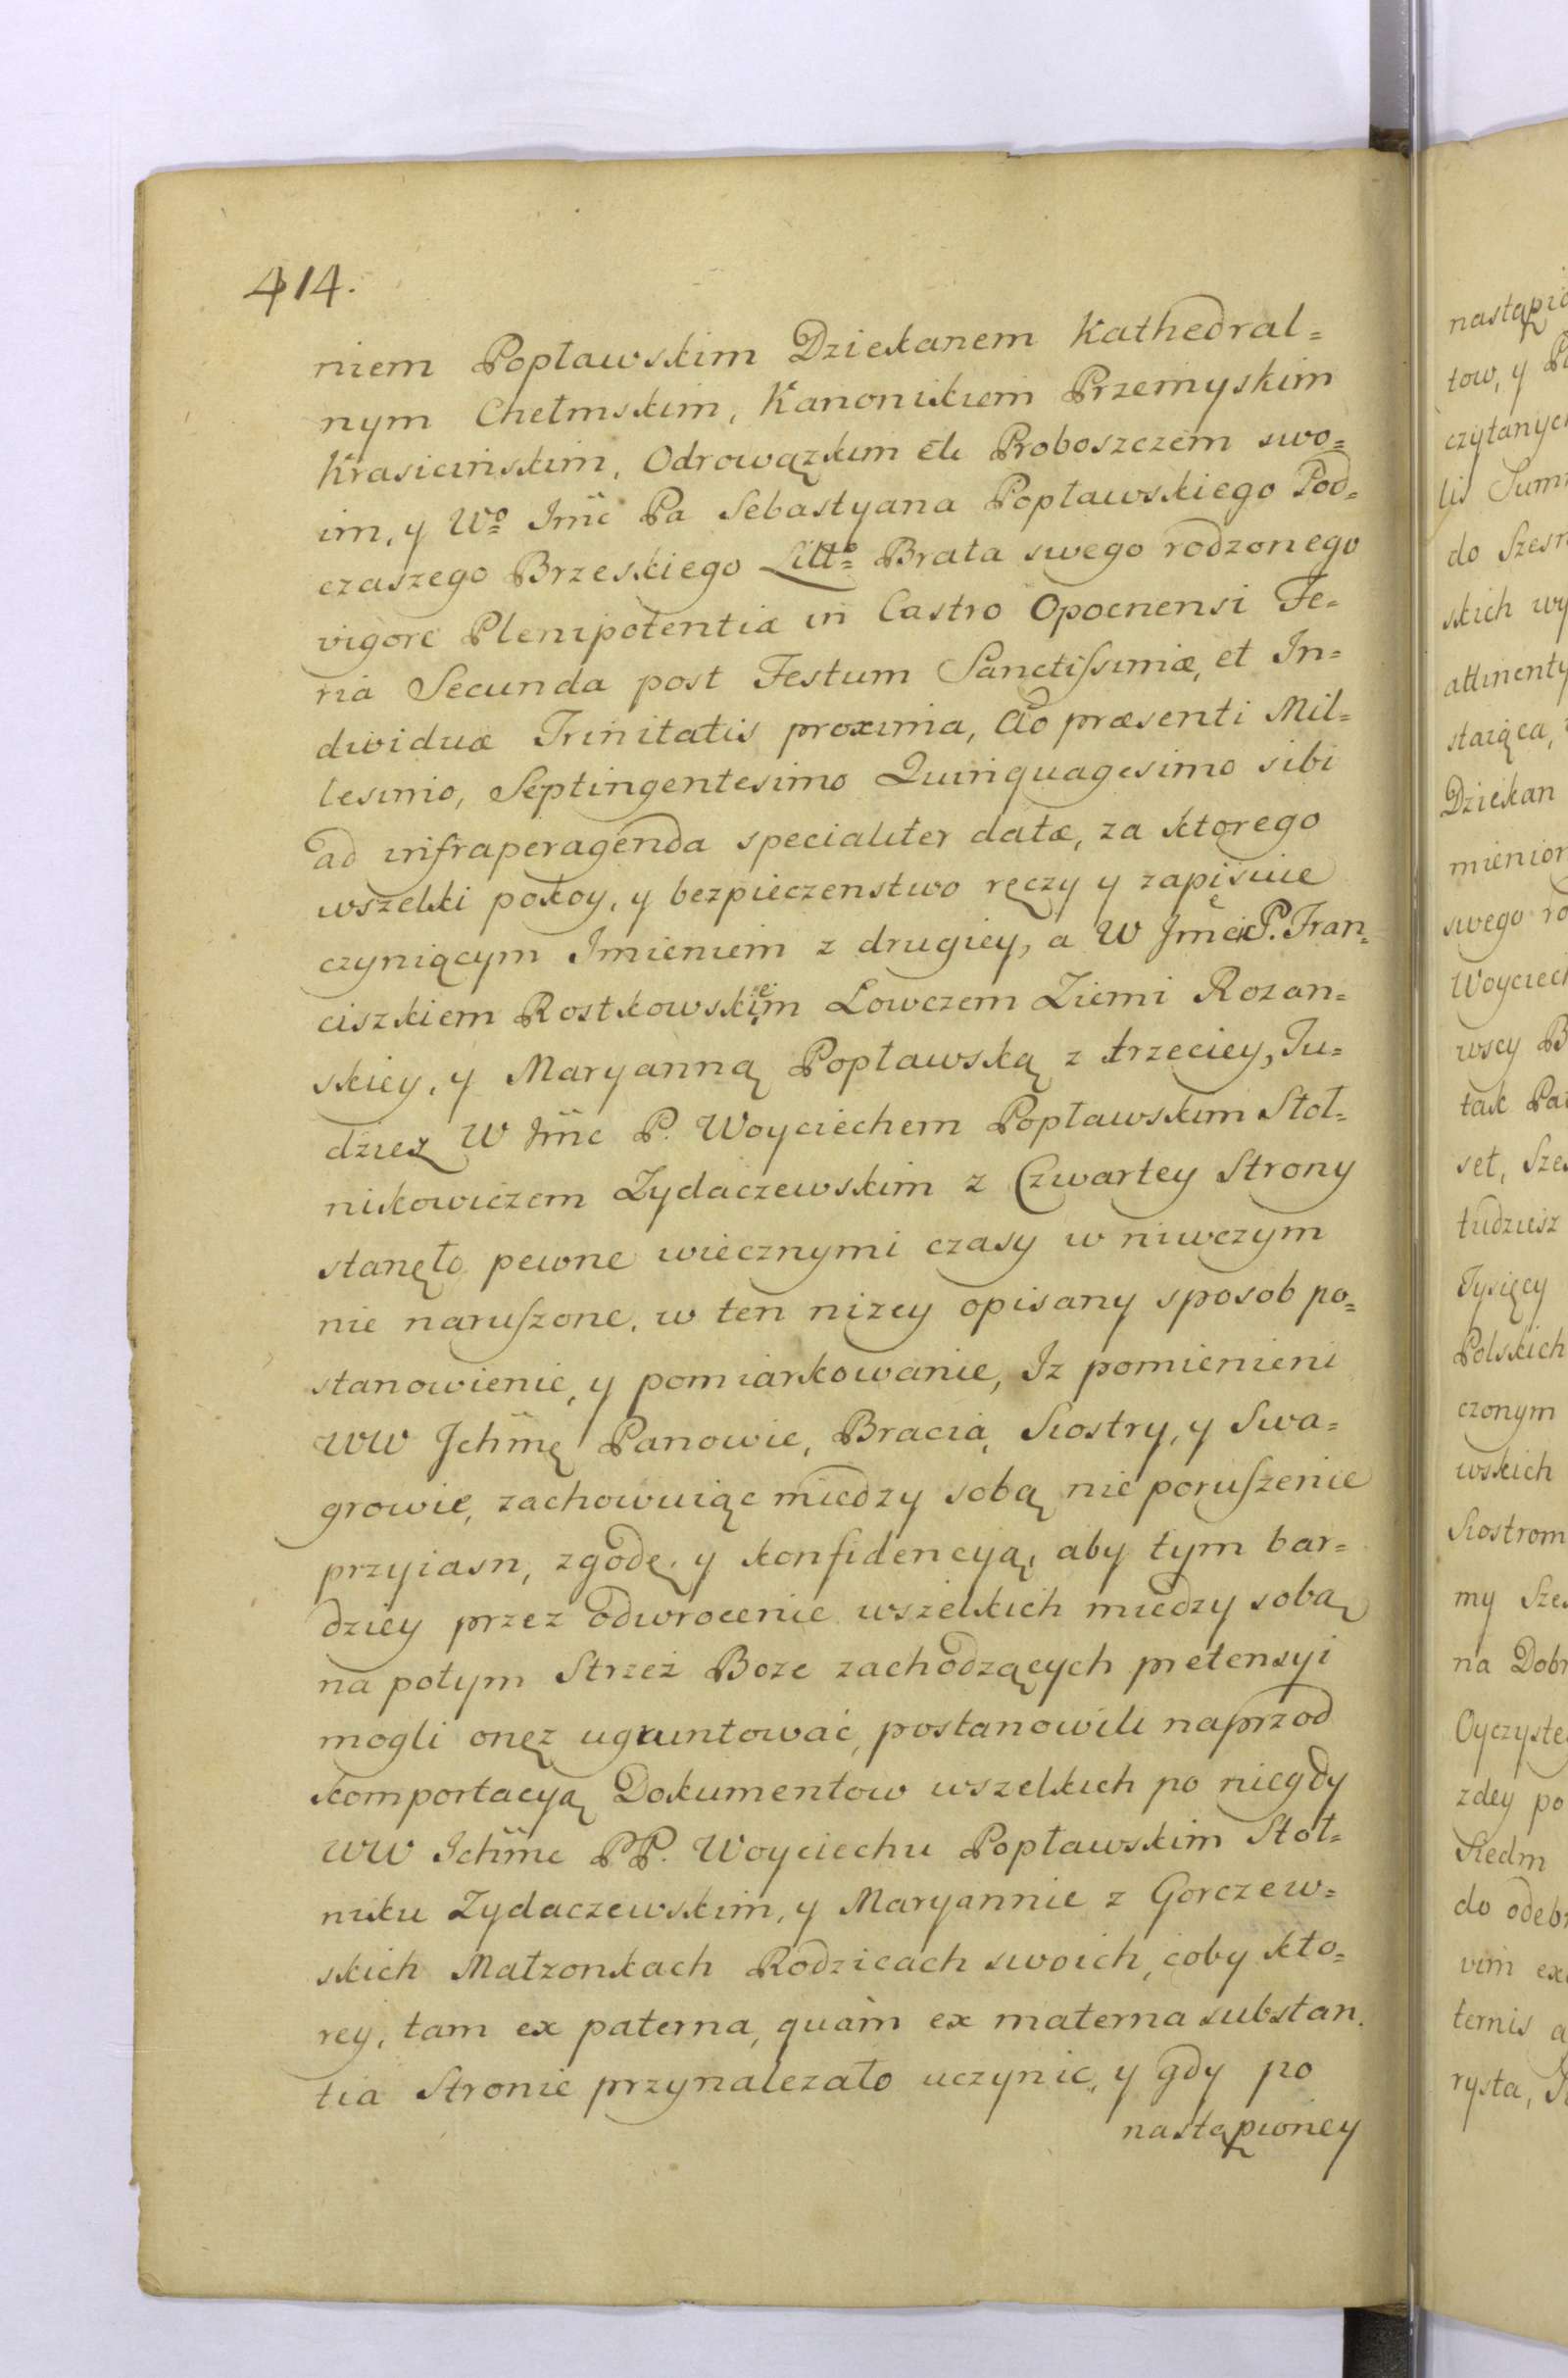 414.
niem Popławskim Dziekanem Kathedral=
nym Chełmskim, Kanonikiem Przemyskim
Krasicinskim, Odrowązkim etc Proboszczem swo=
im, y Wo Jmc Pa Sebastyana Popławskiego Pod=
czaszego Brzeskiego Litto Brata swego rodzonego
vigore Plenipotentiæ in Castro Opocnensi Fe=
ria Secunda post Festum Sanctissimæ, et In=
dividuæ Trinitatis proxima, Ao præsenti Mil=
lesimo, Septingentesimo Quinquagesimo sibi
ad infraperagenda specialiter datæ, za ktorego
wszelki pokoy, y bezpieczenstwo ręczy y zapisuie
czyniącym Imieniem z drugiey, a W Jmci P. Fran=
ciszkiem Rostkowskiem Łowczem Ziemi Rozan=
skiey, y Maryanną Popławską z trzeciey, Tu=
dziez W Jmc P. Woyciechem Popławskim Stol=
nikowiczem Zydaczewskim z Czwartey Strony
stanęło pewne wiecznymi czasy w niwczym
nie naruszone, w ten nizey opisany sposob po=
stanowienie, y pomiarkowanie, Iz pomienieni
WW Jchmę Panowie, Bracia, Siostry, y Swa=
growie, zachowuiąc miedzy sobą nie poruszenie
przyiasn, zgodę, y konfidencyą, aby tym bar=
dziey przez odwrocenie wszelkich miedzy sobą
na potym Strzeż Boze zachodzących pretensyi
mogli onęz ugruntować, postanowili naprzod
komportacyą Dokumentow wszelkich po niegdy
WW Ichmc PP. Woyciechu Popławskim Stol=
niku Zydaczewskim, y Maryannie z Gorczew=
skich Małzonkach Rodzicach swoich, coby kto=
rey, tam ex paterna, quàm ex materna substan.
tia Stronie przynalezało uczynic, y gdy po
nastąpioney
nastąpio
tow, y
czytanych
lis Sum
do Szesn
skich wy
attinenty
staiąca,
Dziekan
mienion
swego ro
Woyciech
wscy
tak
set, Sze
tudziesz
Tysięcy
Polskich
czonym
wskich
Siostrom
my Sze
na Dobr
Oyczyste
zdey po
Siedm
do odebr
vim ex
ternis a
rysta,